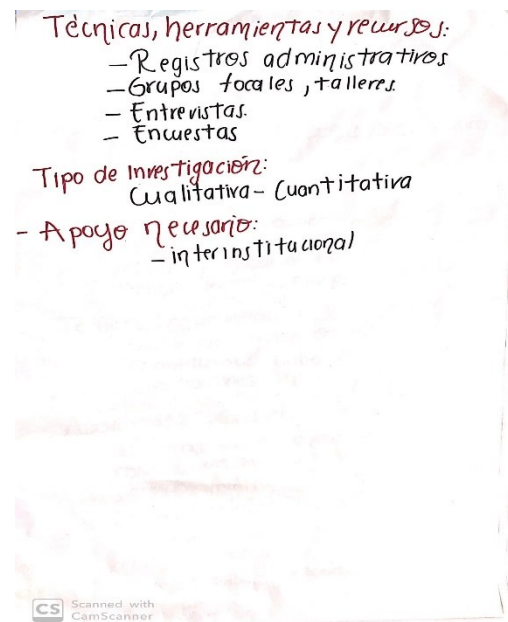 Técnicas, herramientas y recursos:
- Registros administrativos
- Grupos focales, talleres.
- Entrevistas.
- Encuestas
Tipo de investigación:
Cualitativa - Cuantitativa
- Apoyo necesario:
- interinstitucional
CS Scanned with
CamScanner